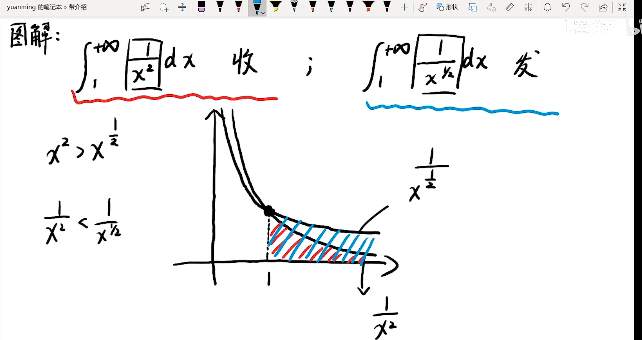 yuanming 的笔记本 » 帮介绍
形状
图解:
∫₁^{+∞} 1/x² dx 收 ; ∫₁^{+∞} 1/x^{1/2} dx 发
x² > x^{1/2}
1/x^{1/2}
1/x² < 1/x^{1/2}
1
1/x²